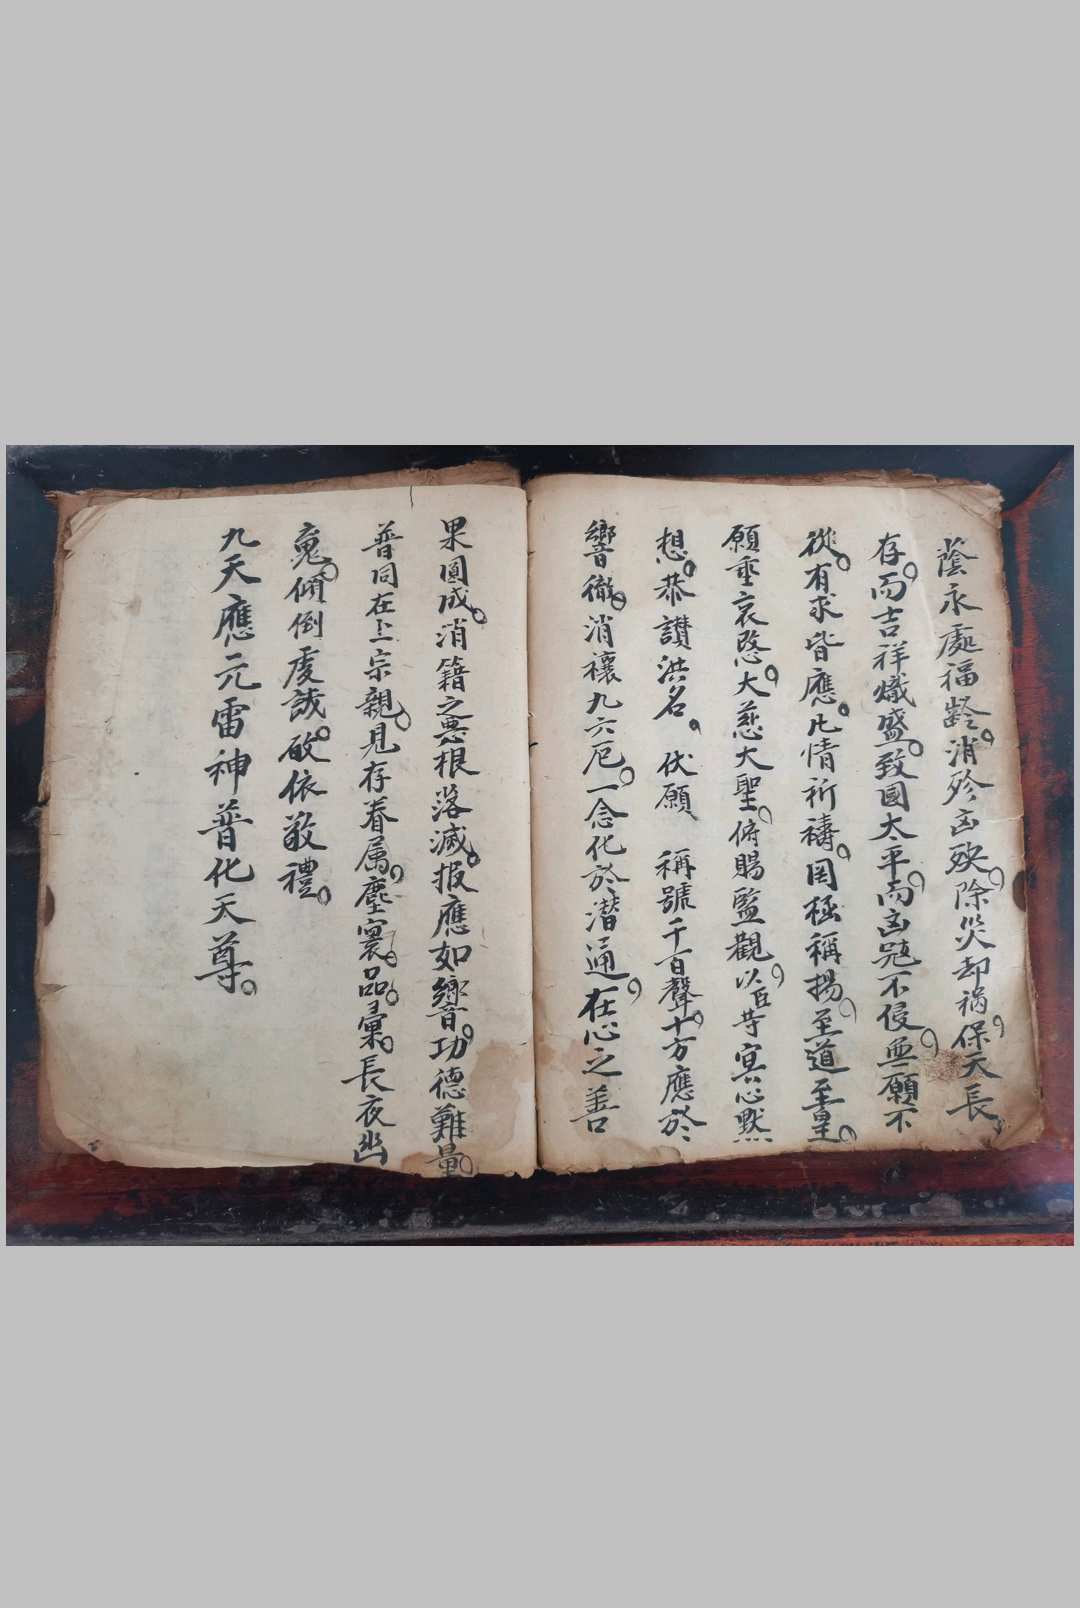 蔭永處福齡。消殄凶殃。除災却禍。保天長
存。而吉祥熾盛。致國太平。而凶兇不侵。無願不
從。有求皆應。凡情祈禱。罔極稱揚。至道至皇。
願垂哀愍。大慈大聖。俯賜監觀。以臣等冥心默
想。恭讚洪名。伏願 稱號千百聲。十方應於
響徹。消禳九六厄。一念化於潛通。在心之善
果圓成。消籍之悪根落滅。报應如響。功德難量。
普同在上宗親。見存眷属。塵寰。品彙。長夜幽
魂。傾倒虔誠。啟依敬禮。
九天應元雷神普化天尊。